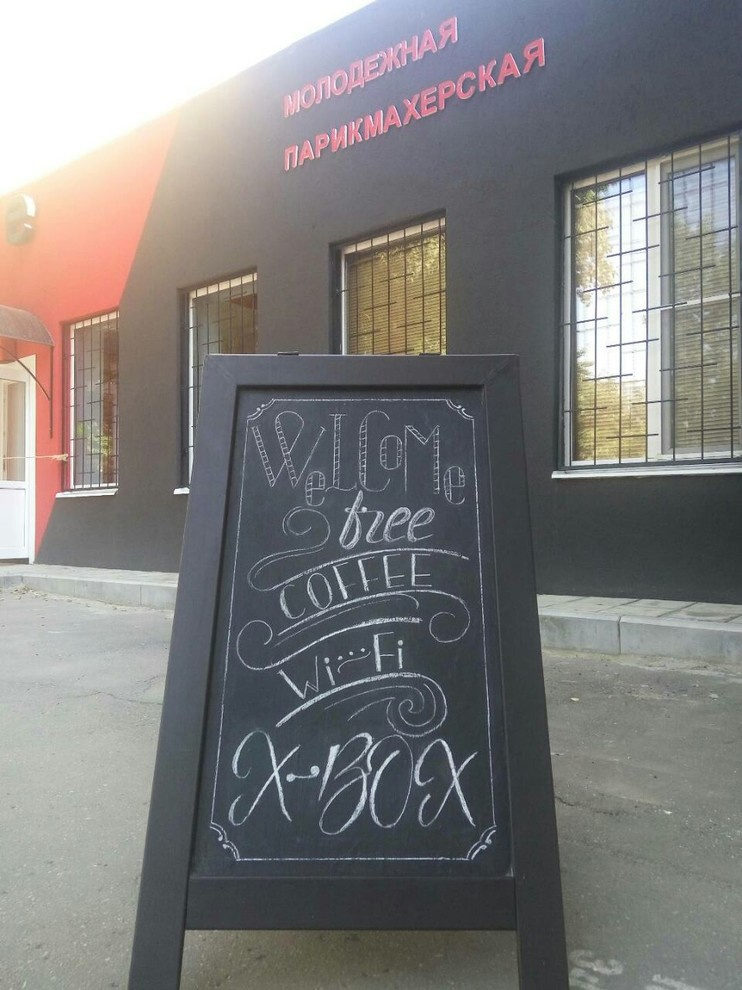 МОЛОДЕЖНАЯ
ПАРИКМАХЕРСКАЯ
WeLCoMe
free
COFFEE
Wi-Fi
X-BOX